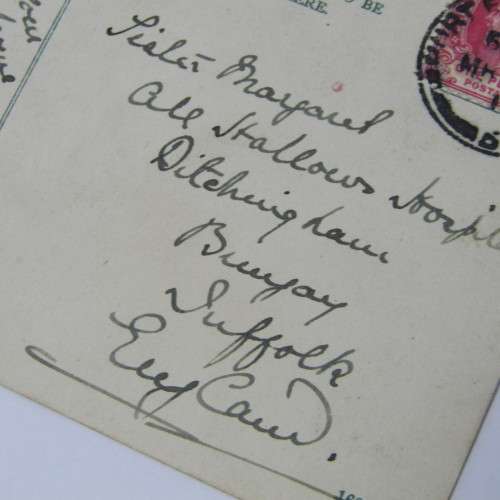 TO BE
HERE.
Sister Margaret
All Hallows Hospital
Ditchingham
Bungay
Suffolk
England.
POST